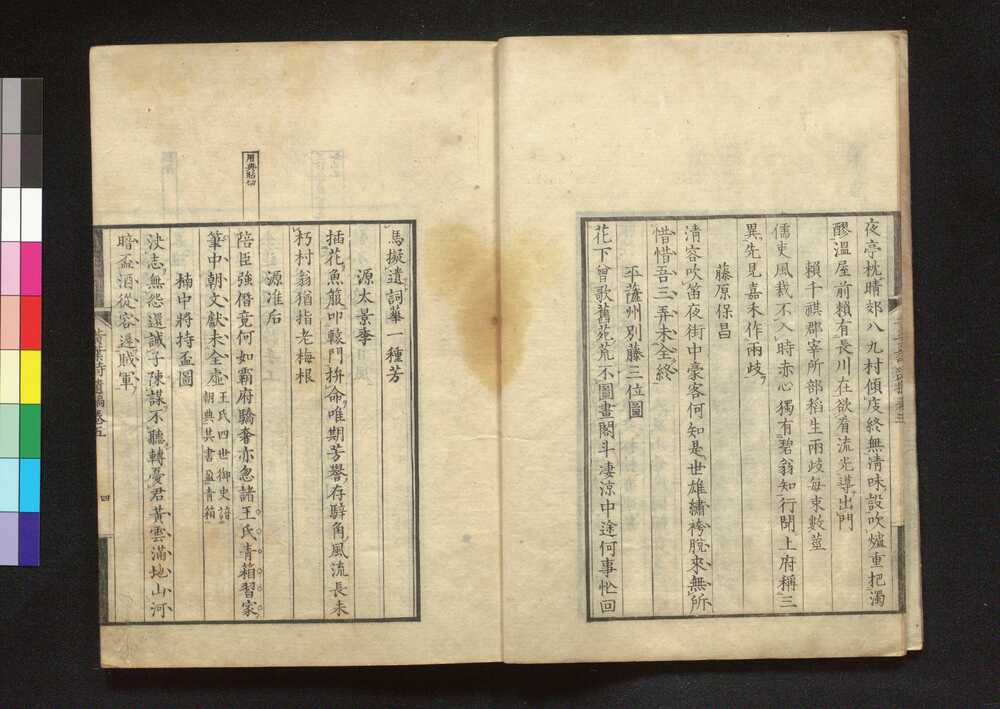 夜亭枕晴郊八九村傾皮終無清味設吹爐重把濁
醪溫屋前賴有長川在欲看流光導出門
賴千祺郡宰所部稻生兩歧每束數莖
儒吏風裁不入時赤心獨有碧翁知行聞上府稱三
異先見嘉禾作兩歧
藤原保昌
清容吹笛夜街中豪客何知是世雄繡袴脫來無所
惜惜吾三弄未全終
平薩州別藤三位圖
花下曾歌舊苑荒不圖畫閣斗淒涼中途何事忙回
馬擬遺詞華一種芳
源太景季
插花魚箙叩轅門拚命唯期芳譽存騂角風流長未
朽村翁猶指老梅根
源准后
用典貼切
陪臣強僭竟何如霸府驕奢亦忽諸王氏青箱習家
筆中朝文獻未全虛王氏四世御史諳
朝典其書盈青箱
楠中將持盃圖
決志無怨還誡子陳謀不聽轉憂君黃雲滿地山河
暗盃酒從容邀賊軍
黃葉詩遺稿卷五
四